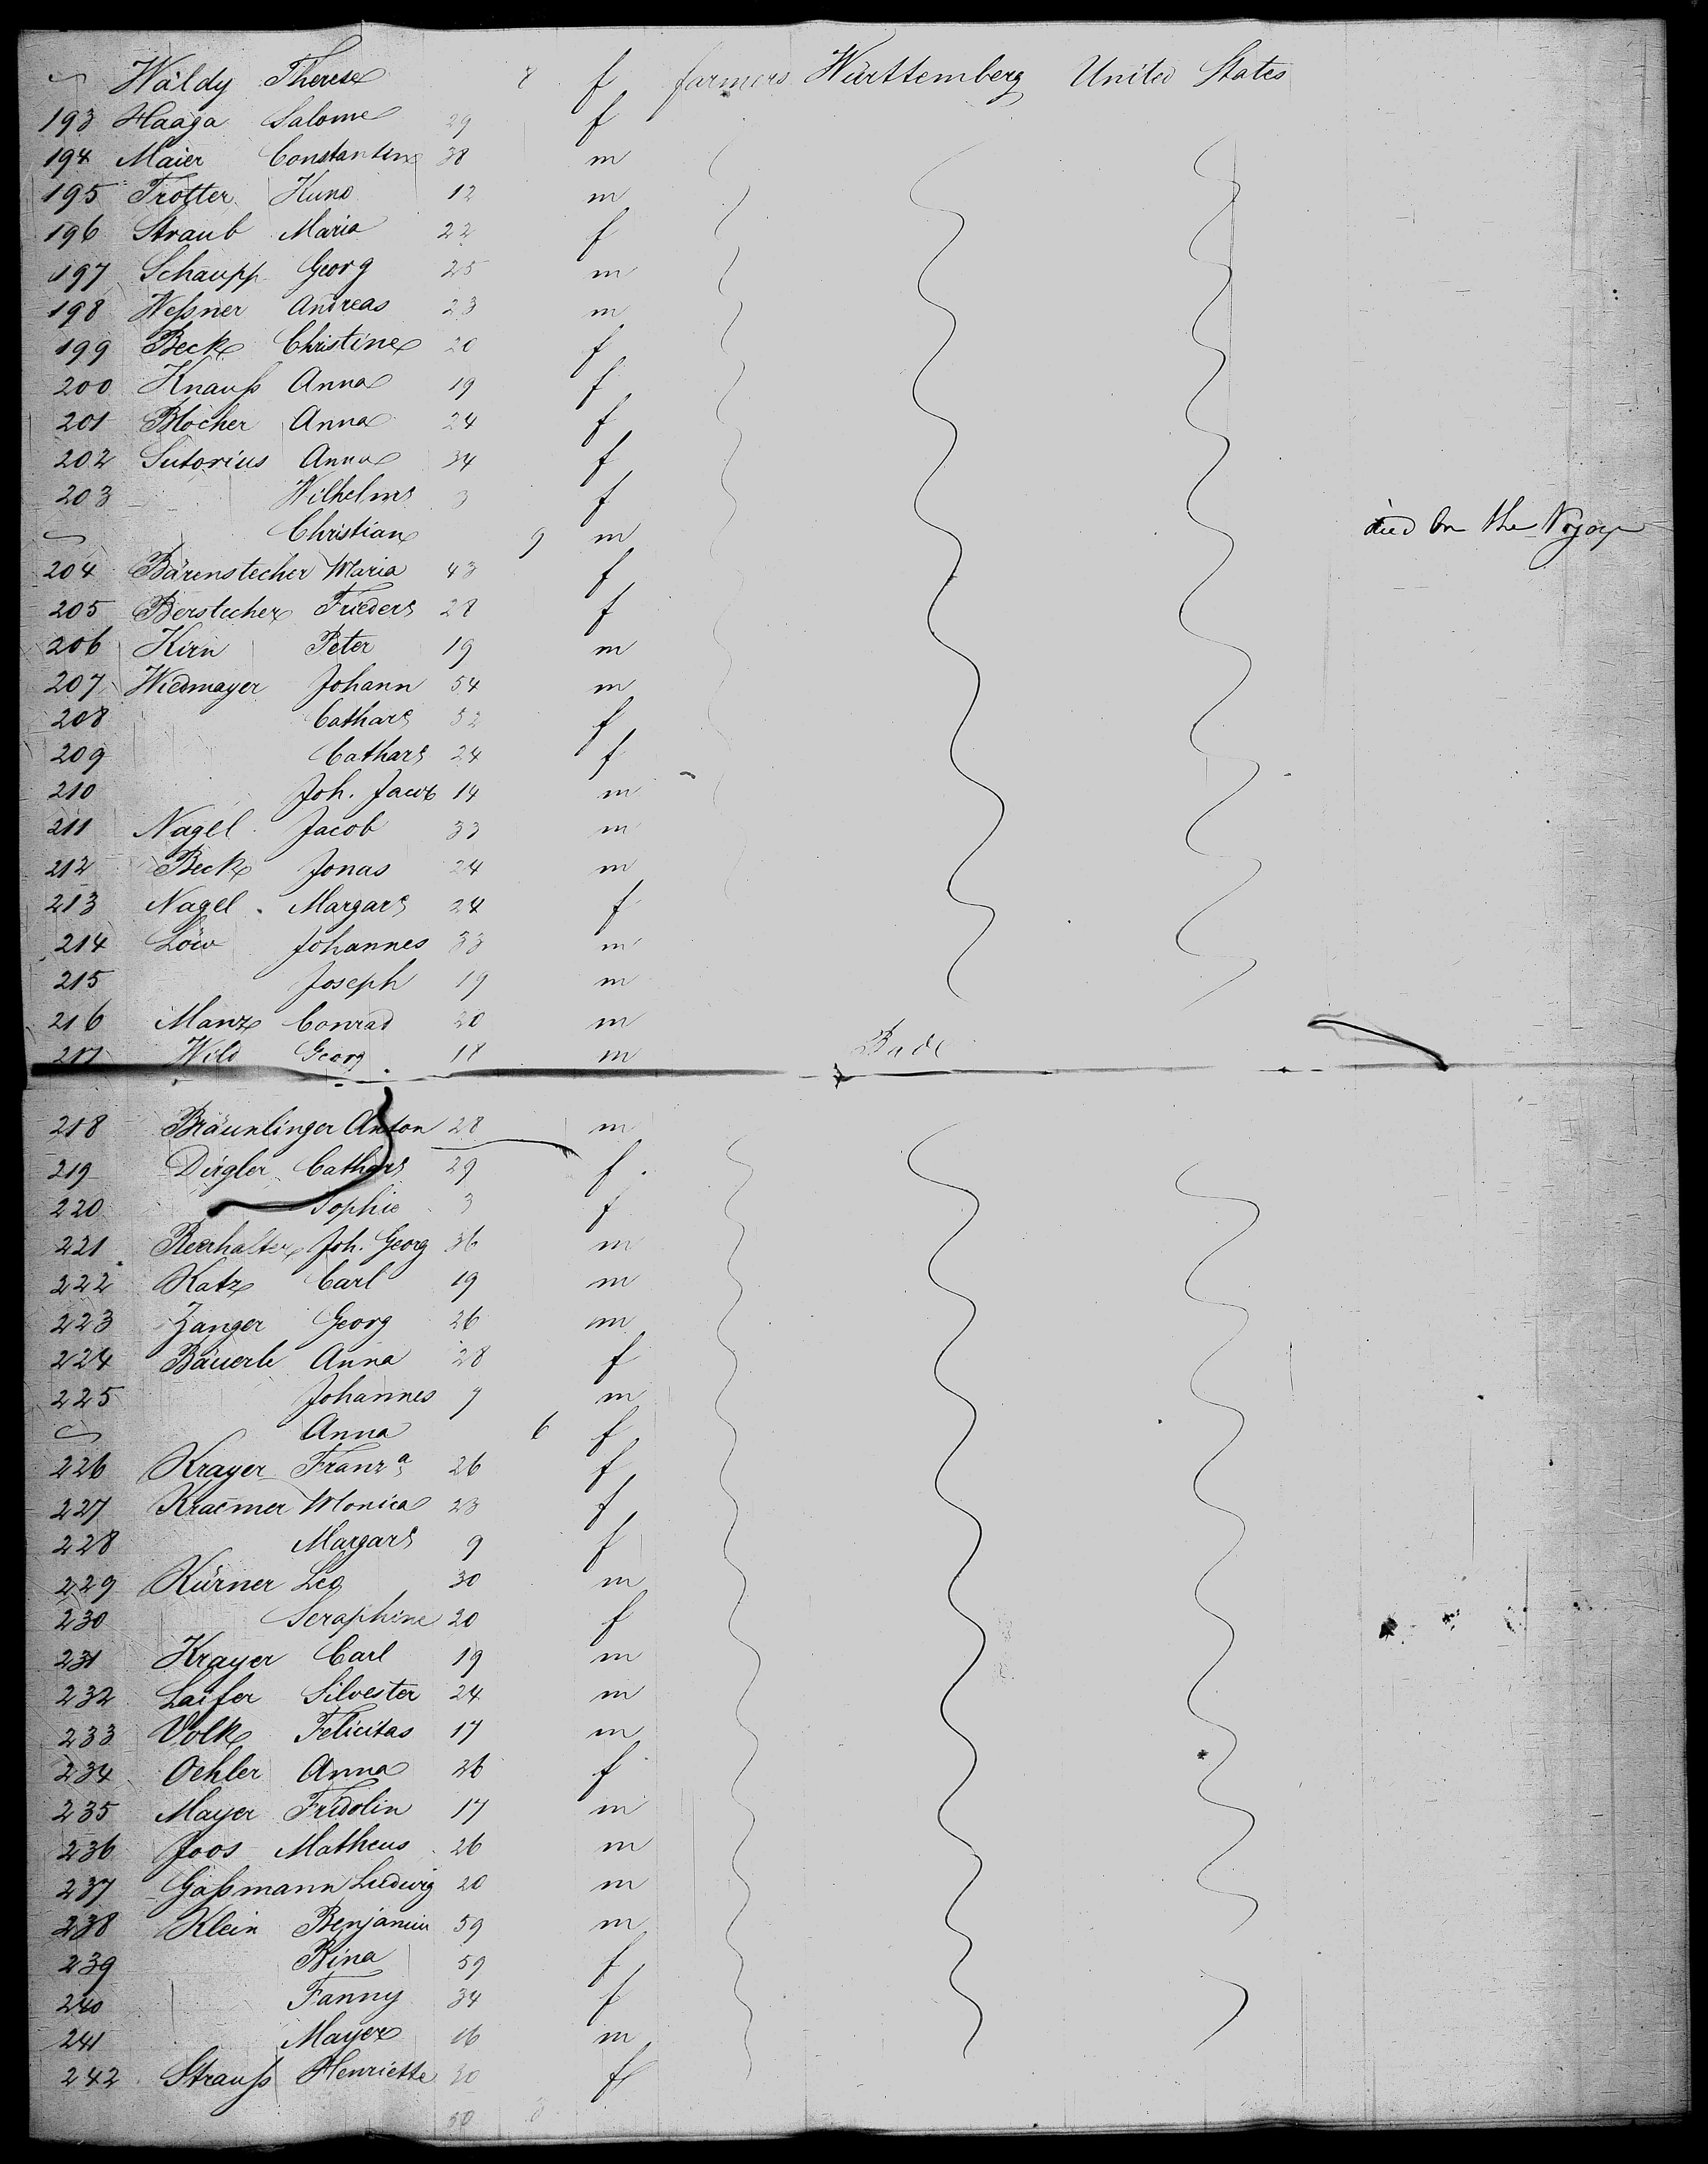 Wäldy Therese 8 f farmers Württemberg United States
193 Haaga Salome 29 f
194 Maier Constantin 38 m
195 Trotter Kuno 12 m
196 Straub Maria 22 f
197 Schaupp Georg 25 m
198 Weßner Andreas 23 m
199 Beck Christine 20 f
200 Knauß Anna 19 f
201 Blocher Anna 24 f
202 Sutorius Anna 34 f
203 Wilhelme 3 f
Christian 9 m died on the Voyage
204 Bärenstecher Maria 43 f
205 Berstecher Frieders 28 f
206 Kirn Peter 19 m
207 Wiedmayer Johann 54 m
208 Cathare 52 f
209 Cathare 24 f
210 Joh. Jacob 14 m
211 Nagel Jacob 33 m
212 Beck Jonas 24 m
213 Nagel Margare 24 f
214 Löw Johannes 33 m
215 Joseph 19 m
216 Manz Conrad 20 m
217 Wild Georg 18 m Bade
218 Bräunlinger Anton 28 m
219 Dirgler Cathare 29 f
220 Sophie 3 f
221 Reerhalter Joh. Georg 36 m
222 Katz Carl 19 m
223 Zanger Georg 26 m
224 Bäuerle Anna 28 f
225 Johannes 7 m
Anna 6 f
226 Krayer Franza 26 f
227 Kraemer Monica 23 f
228 Margare 9 f
229 Kürner Leo 30 m
230 Seraphine 20 f
231 Krayer Carl 19 m
232 Laifer Silvester 24 m
233 Volk Felicitas 17 m
234 Oehler Anna 26 f
235 Mayer Fridolin 17 m
236 Joos Matheus 26 m
237 Gaßmann Ludwig 20 m
238 Klein Benjamin 59 m
239 Bina 59 f
240 Fanny 34 f
241 Mayer 16 m
242 Strauß Henriette 30 f
50 3